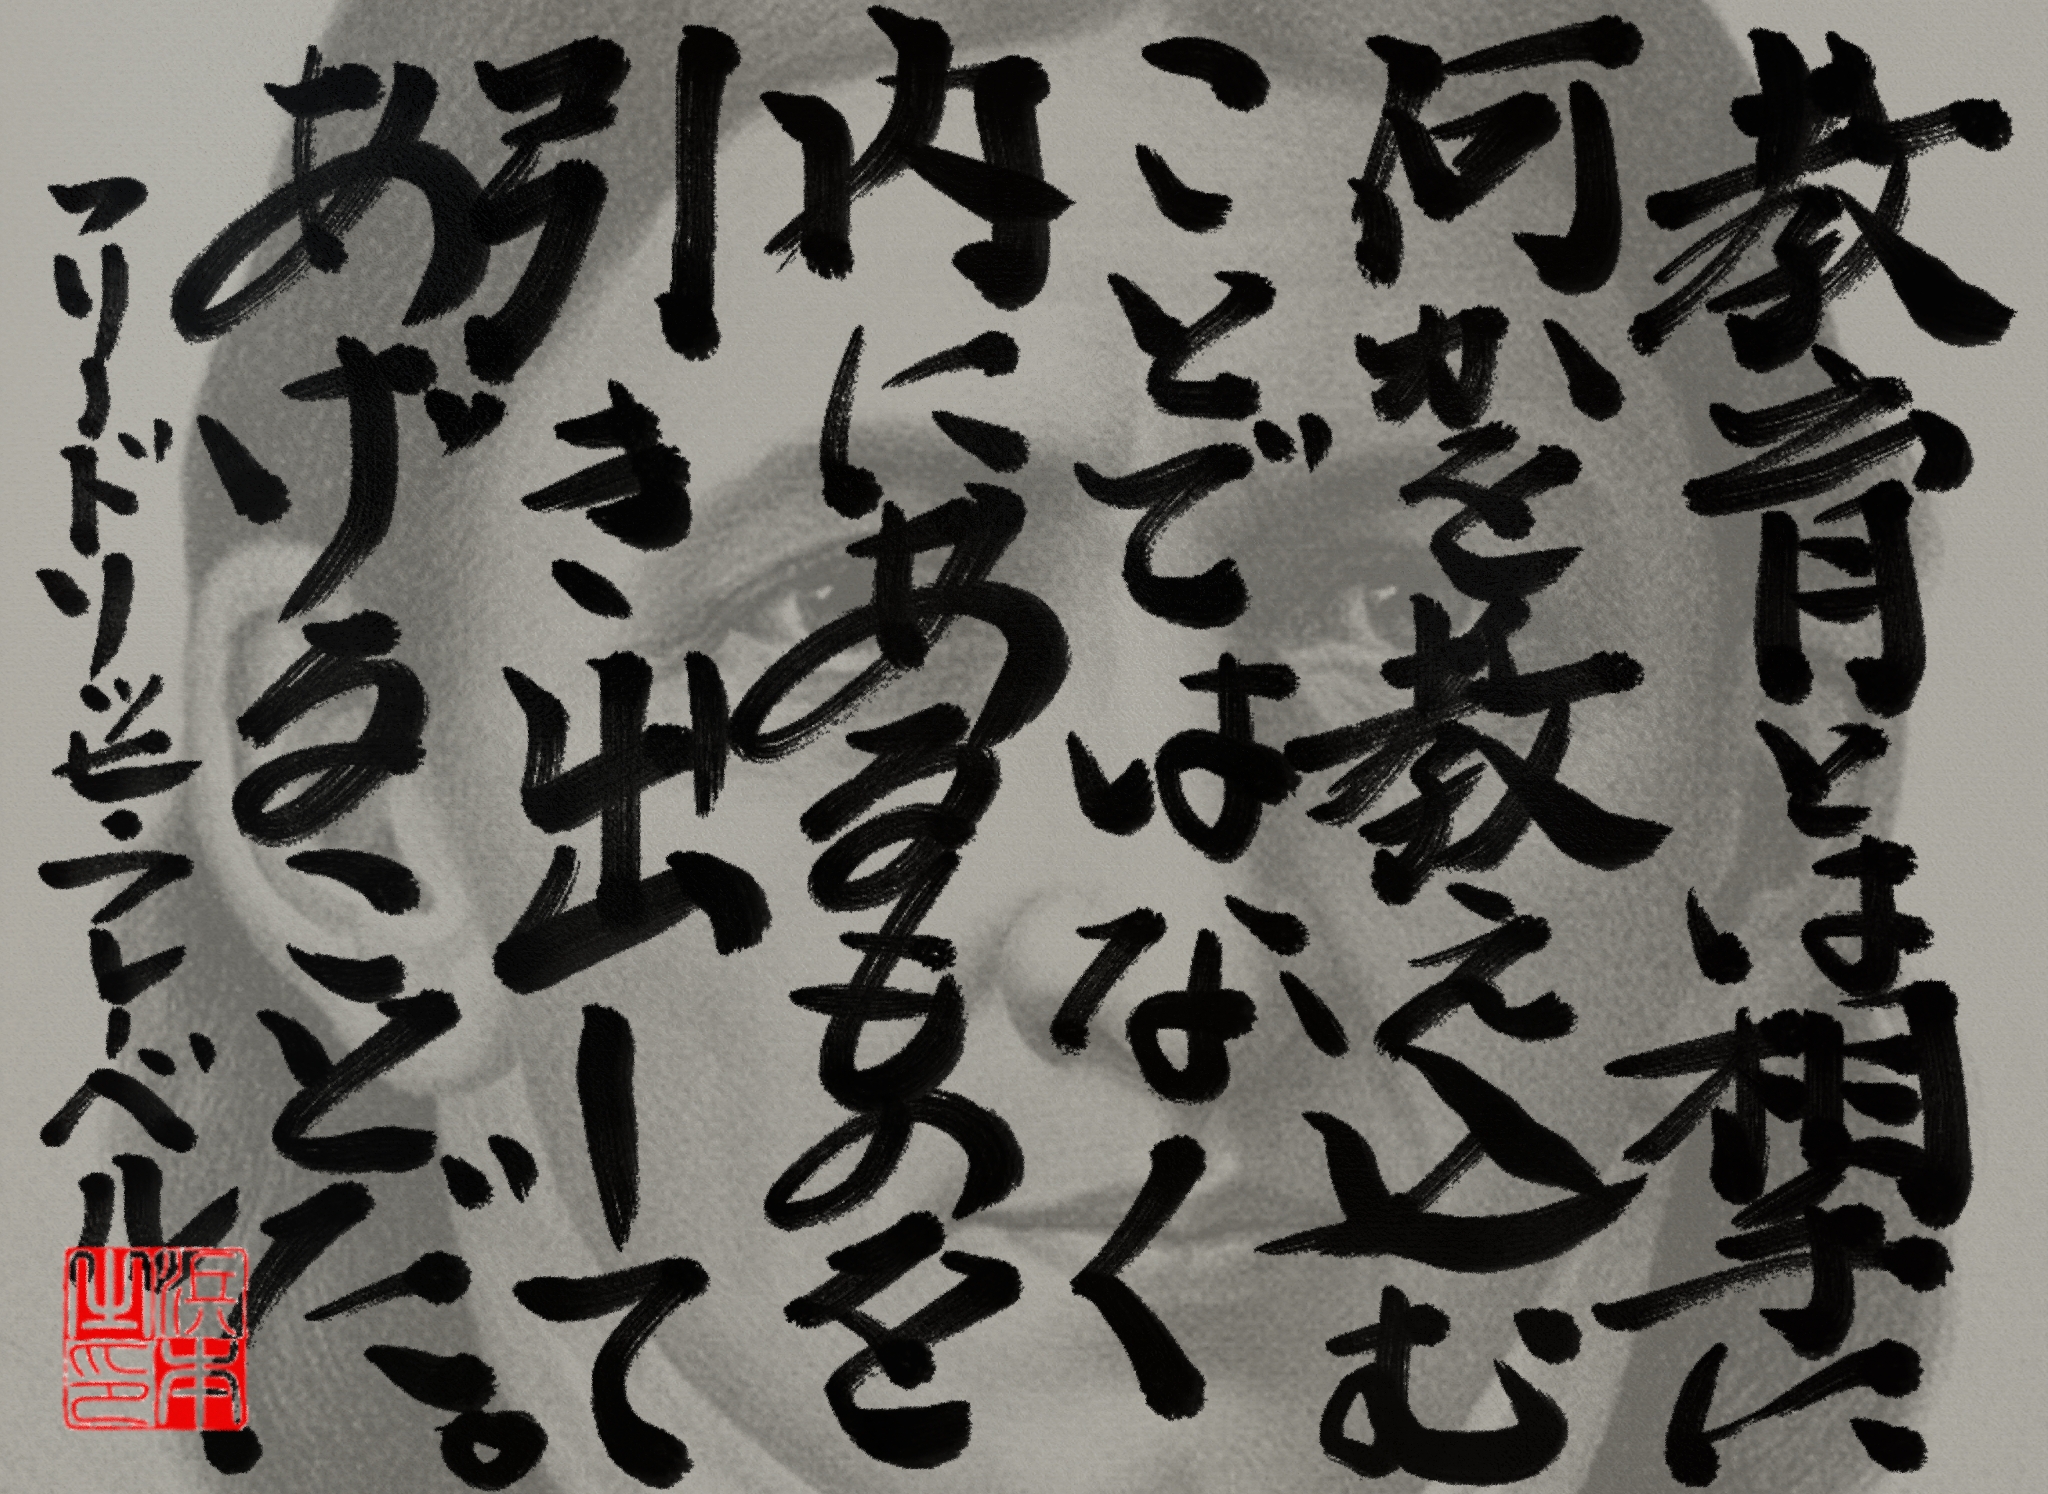 教育とは相手に
何かを教え込む
ことではなく
内にあるものを
引き出して
あげることだ。
フリードリッヒ・フレーベル
浜本之印